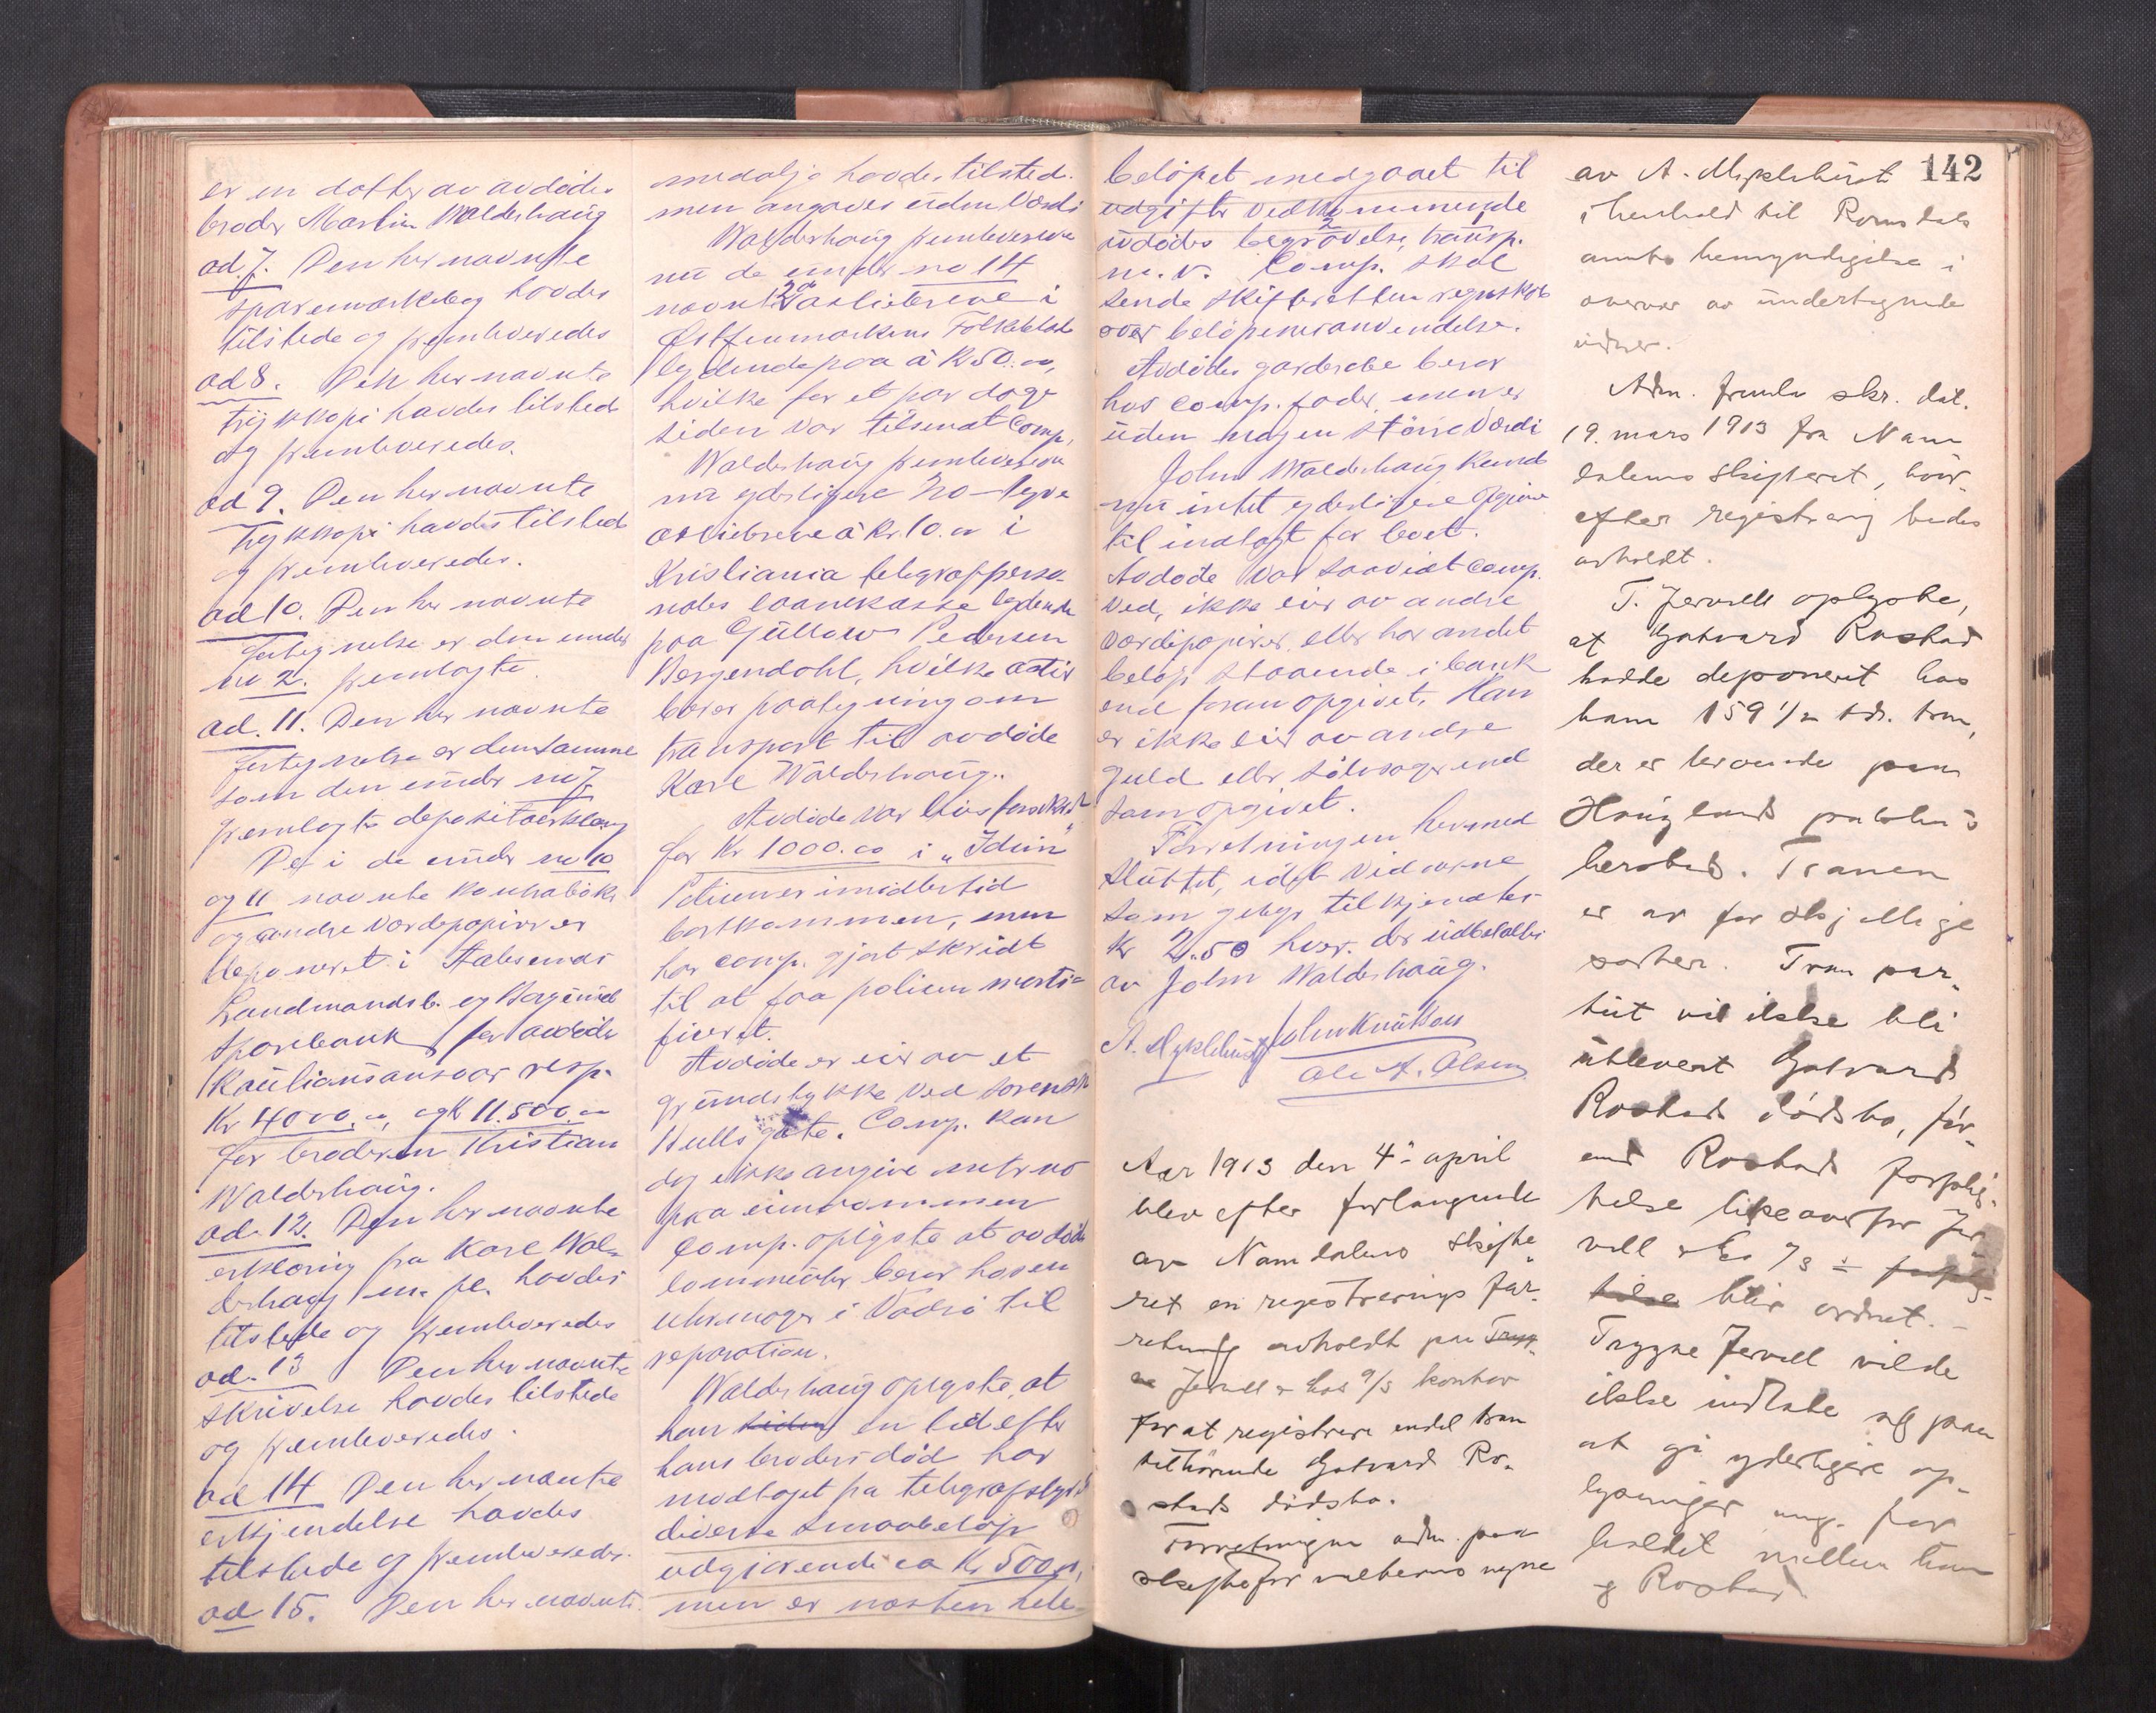 er en datter av avdødes
broder Martin Walderhaug
ad 7. Den her nævnte
sparemærkebog havdes
tilstede og fremleveredes
ad 8. Den her nævnte
trykkopi havdes tilstede
og fremleveredes.
ad 9. Den her nævnte
trykkopi havdes tilstede
og fremleveredes.
ad 10. Den her nævnte
fortegnelse er den under
no 2. fremlagte.
ad. 11. Den her nævnte
fortegnelse er den samme
som den under no 7
fremlagte
De i de under no 10
og 11 nævnte kontrabøker
og andre værdipapirer er
deponeret i Aalesunds
Landmandsb. og Borgund
Sparebank for avdøde
kautionsansvar resp.
Kr 4000.00, og K 11.500.00
for broderen Kristian
Walderhaug.
ad. 12. Den her nævnte
erklæring fra Karl Wal-
derhaug m. fl. havdes
tilstede og fremleveredes
ad. 13 Den her nævnte
skrivelse havdes tilstede
og fremleveredes.
ad 14 Den her nævnte
erkjendelse havdes
tilstede og fremleveredes.
ad 15. Den her nævnte
medalje havdes tilstede.
men angaves uden værdi
Walderhaug fremleverede
nu de under no 14
nævnte 2 aktiebreve i
Østfinmarkens Folkeblad
lydende paa à K 50.00,
hvilke for et par dage
siden var tilsendt Comp.
Walderhaug fremleverede
nu yderligere 20 - tyve
aktiebreve à Kr. 10.00 i
Kristiania telegrafperso-
nales laanekasse lydende
paa Güllow Pedersen
Bergendahl, hvilke aktier
bærer paategning om
transport til avdøde
Karl Walderhaug.
Avdøde var livsforsikret
for Kr 1000.00 i "Idun"
Policen er imidlertid
bortkommen, men
har comp. gjort skridt
til at faa policen morti-
ficeret.
Avdøde er eier av et
grundstykke ved Svend
gate. Comp. kan
dog ikke angive matr no
paa eiendommen
Comp. oplyste at avdødes
lommeuhr beror hos en
uhrmager i Vadsø til
reparation.
Walderhaug oplyste, at
han siden en tid efter
hans broders død har
mottaget fra telegrafstyret
diverse smaabeløp
udgjørende ca Kr 500.00,
men er næsten hele
142
beløpet medgaaet til
udgifter vedkommende
avdødes begravelse, transp.
m. v. Comp. skal
sende skifteretten regnskab
over beløpenes anvendelse.
Avdødes garderobe beror
hos comp. fader, men er
uden nogen større værdi
John Walderhaug kunde
nu intet yderligere opgive
til indtægt for boet.
Avdøde var saavidt comp.
ved, ikke eier av andre
værdipapirer, eller har andet
beløp staaende i bank
end foran opgivet. Han
er ikke eier av andre
guld eller sølvsager end
som opgivet.
Forretningen hermed
sluttet, idet vidnerne
som gebyr tilkjendes
Kr 2.50 hver. der udbetaltes
av John Walderhaug.
A. Myklebust John Knutsen
Ole A. Olsen
Aar 1913 den 4de april
blev efter forlangende
av Namdalens skifte-
ret en registrerings for-
retning avholdt paa Tryg-
ve Jervell & Cos A/S kontor
for at registrere endel tran
tilhørende Gotvard Ro-
stads dødsbo.
Forretningen adm. paa
skifteforvalterens vegne
av A. Myklebust
i henhold til Romsdals
amts bemyndigelse i
overvær av undertegnede
vidner.
Adm. fremla skr. dat.
19. mars 1913 fra Nam-
dalens skifteret, hvor-
efter registrering bedes
avholdt.
T. Jervell oplyste,
at Gotvard Rostad
hadde deponeret hos
ham 159 1/2 tdr. tran,
der er beroende paa
Hauglands pakhus
hersteds. Tranen
er av forskjellige
sorter. Tran par-
tiet vil ikke bli
utlevert Gotvard
Rostads dødsbo, før-
end Rostads forplig-
telse likeoverfor Jer-
vell & Co A/S
blir ordnet. -
Trygve Jervell vilde
ikke indlate sig paa
at gi yderligere op-
lysninger ang. for-
holdet mellem ham
og Rostad